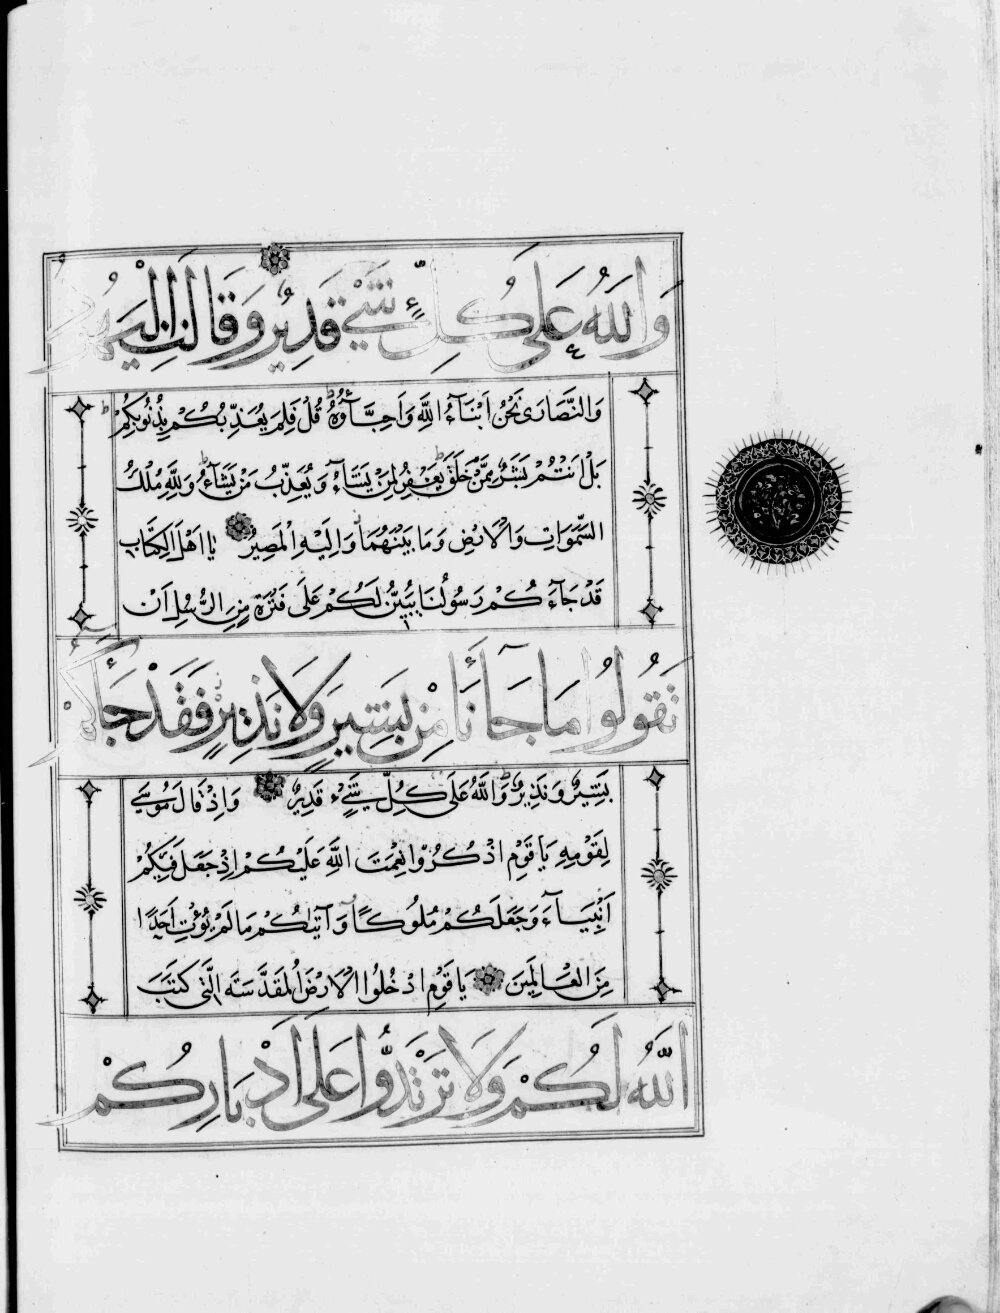 وَاللّٰهُ عَلَى كُلِّ شَيْءٍ قَدِيرٌ وَقَالَتِ الْيَهُودُ
وَالنَّصَارَى نَحْنُ اَبْنَآءُ اللّٰهِ وَاَحِبَّآؤُهُ قُلْ فَلِمَ يُعَذِّبُكُمْ بِذُنُوبِكُمْ
بَلْ اَنْتُمْ بَشَرٌ مِمَّنْ خَلَقَ يَغْفِرُ لِمَنْ يَشَآءُ وَيُعَذِّبُ مَنْ يَشَآءُ وَلِلّٰهِ مُلْكُ
السَّمٰوَاتِ وَالْاَرْضِ وَمَا بَيْنَهُمَا وَاِلَيْهِ الْمَصِيرُ يَا اَهْلَ الْكِتَابِ
قَدْ جَآءَكُمْ رَسُولُنَا يُبَيِّنُ لَكُمْ عَلَى فَتْرَةٍ مِنَ الرُّسُلِ اَنْ
تَقُولُوا مَا جَآءَنَا مِنْ بَشِيرٍ وَلَا نَذِيرٍ فَقَدْ جَآءَكُمْ
بَشِيرٌ وَنَذِيرٌ وَاللّٰهُ عَلَى كُلِّ شَيْءٍ قَدِيرٌ وَاِذْ قَالَ مُوسَى
لِقَوْمِهِ يَا قَوْمِ اذْكُرُوا نِعْمَتَ اللّٰهِ عَلَيْكُمْ اِذْ جَعَلَ فِيكُمْ
اَنْبِيَآءَ وَجَعَلَكُمْ مُلُوكًا وَآتٰيكُمْ مَا لَمْ يُؤْتِ اَحَدًا
مِنَ الْعَالَمِينَ يَا قَوْمِ ادْخُلُوا الْاَرْضَ الْمُقَدَّسَةَ الَّتِى كَتَبَ
اللّٰهُ لَكُمْ وَلَا تَرْتَدُّوا عَلَى اَدْبَارِكُمْ